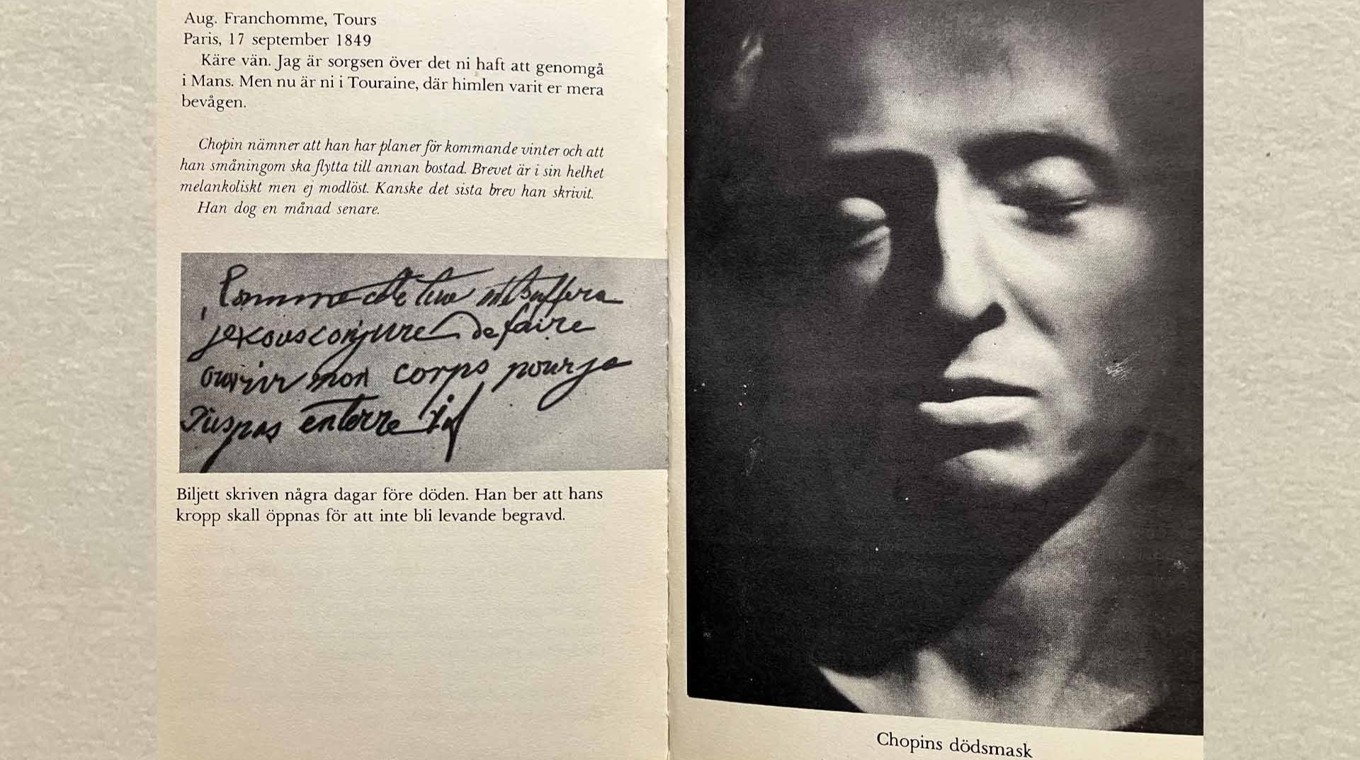 Aug. Franchomme, Tours
Paris, 17 september 1849
Käre vän. Jag är sorgsen över det ni haft att genomgå
i Mans. Men nu är ni i Touraine, där himlen varit er mera
bevågen.
Chopin nämner att han har planer för kommande vinter och att
han småningom ska flytta till annan bostad. Brevet är i sin helhet
melankoliskt men ej modlöst. Kanske det sista brev han skrivit.
Han dog en månad senare.
Comme cette
conjure de faire
ouvrir mon corps pour
pas enterré vif
Biljett skriven några dagar före döden. Han ber att hans
kropp skall öppnas för att inte bli levande begravd.
Chopins dödsmask